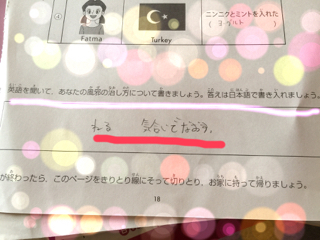 ④
Fatma
Turkey
ニンニクとミントを入れた
(ヨーグルト)
英語を聞いて、あなたの風邪の治し方について書きましょう。答えは日本語で書き入れましょう。
ねる 気合いでなおす。
が終わったら、このページをきりとり線にそって切りとり、お家に持って帰りましょう。
18